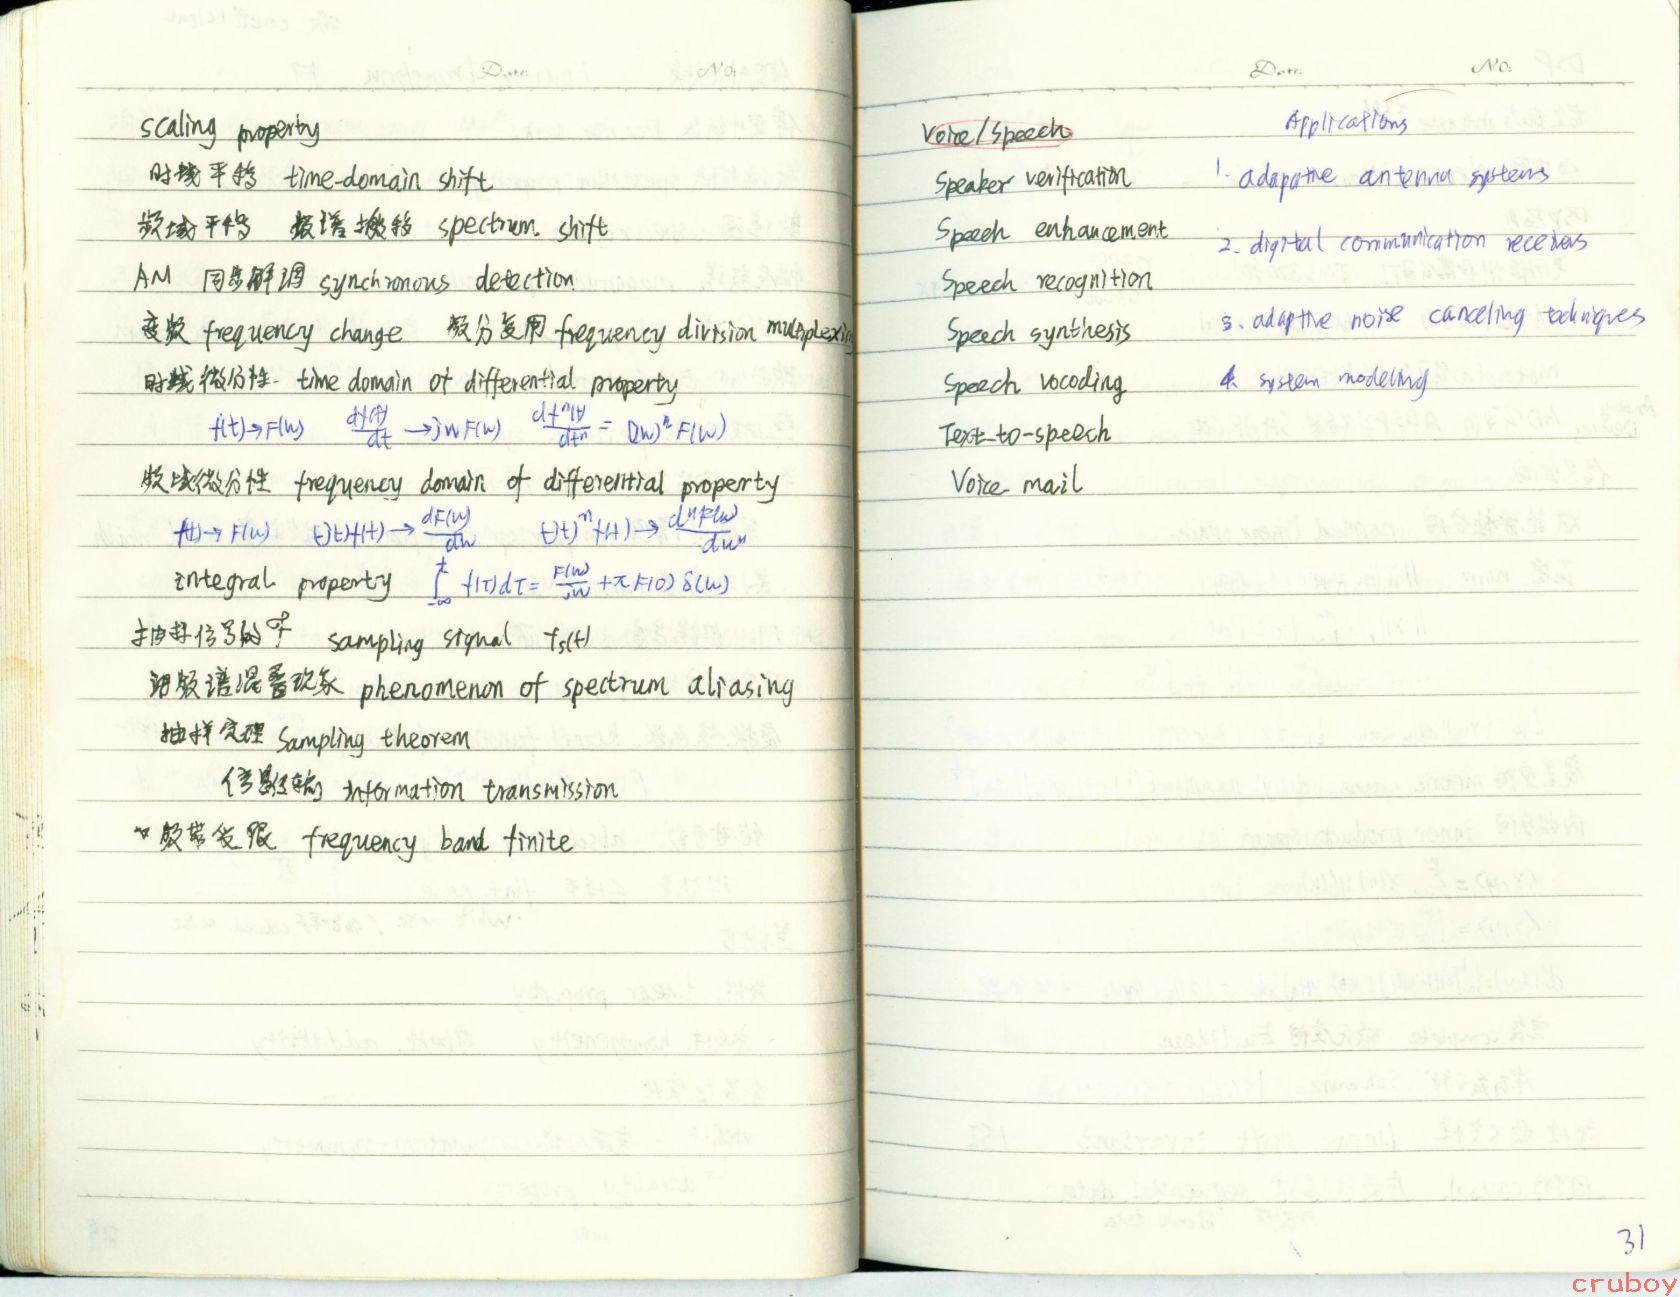 Date. No.
scaling property
时域平移 time-domain shift
频域平移 频谱搬移 spectrum shift
AM 同步解调 synchronous detection
变频 frequency change 频分复用 frequency division multiplexing
时域微分性 time domain of differential property
f(t)→F(w) df(t)/dt →jwF(w) df^n(t)/dt^n = (jw)^n F(w)
频域微分性 frequency domain of differential property
f(t)→F(w) (-jt)f(t)→ dF(w)/dw (-jt)^n f(t)→ d^nF(w)/dw^n
integral property ∫_{-∞}^{t} f(τ)dτ = F(w)/jw + πF(0)δ(w)
抽样信号的 sampling signal fs(t)
频谱混叠现象 phenomenon of spectrum aliasing
抽样定理 Sampling theorem
信息传输 information transmission
频带受限 frequency band finite
Date. No.
Voice/Speech
Speaker verification
Speech enhancement
Speech recognition
Speech synthesis
Speech vocoding
Text-to-speech
Voice mail
Applications
1. adaptive antenna systems
2. digital communication receivers
3. adaptive noise canceling techniques
4. system modeling
31
cruboy